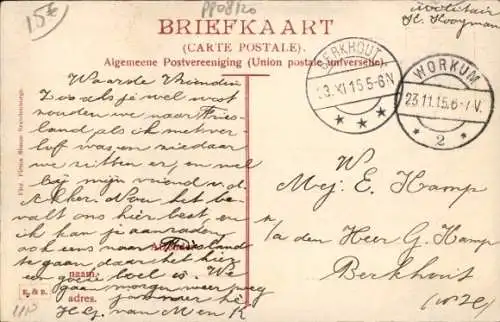 15.-
pp08120
Militair
K. Kooyman
BRIEFKAART
(CARTE POSTALE).
Algemeene Postvereeniging (Union postale universelle).
BERKHOUT
23.XI.15 5-6 N
WORKUM
23.11.15.6-7 V.
2
Waarde Vriendin
Zoo als je wel wist
zouden we naar Fries-
land als ik met ver-
lof was, en nie daar
we zitten er, en wel
bij mijn vriend v. d.
Akker. Nou het be-
valt ons hier best, en
ik kan je aanraden
ook eens naar Friesland
te gaan daar het hier
een goeie boel is. We
gaan morgen weer weg
jammer hè
H.G. van M en K
naam.
adres.
R. & B.
Mej. E. Kamp
p/a den Heer G. Kamp
Berkhout
(N.H.)